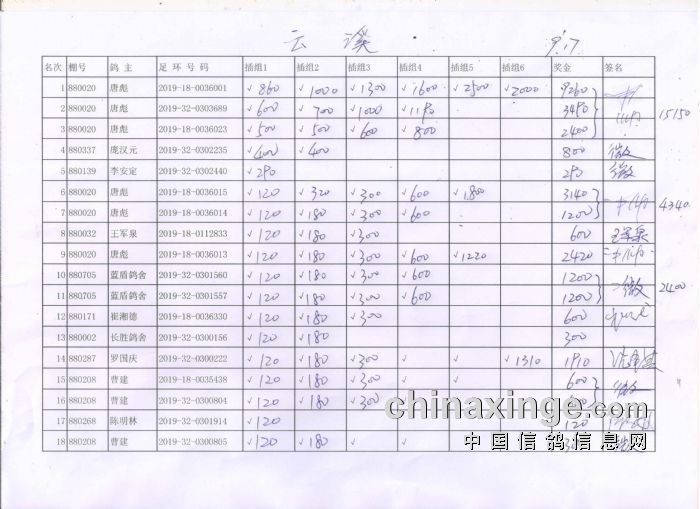 云溪 9.17
名次 棚号 鸽主 足环号码 插组1 插组2 插组3 插组4 插组5 插组6 奖金 签名
1 880020 唐彪 2019-18-0036001 √860 √1000 √1300 √1600 √2500 √2000 9260
2 880020 唐彪 2019-32-0303689 √600 √700 √1000 √1150 3450 15150
3 880020 唐彪 2019-18-0036023 √500 √500 √600 √800 2400
4 880337 庞汉元 2019-32-0302235 √400 √400 800 微
5 880139 李安定 2019-32-0302440 √250 250 微
6 880020 唐彪 2019-18-0036015 √120 √320 √300 √600 √1800 3140
7 880020 唐彪 2019-18-0036014 √120 √180 √300 √600 1200 4340
8 880032 王军泉 2019-18-0112833 √120 √180 √300 600 王军泉
9 880020 唐彪 2019-18-0036013 √120 √180 √300 √600 √1220 2420
10 880705 蓝盾鸽舍 2019-32-0301560 √120 √180 √300 √600 1200
11 880705 蓝盾鸽舍 2019-32-0301557 √120 √180 √300 √600 1200 微 2400
12 880171 崔湘德 2019-18-0036330 √120 √180 √300 600
13 880002 长胜鸽舍 2019-32-0300156 √120 √180 300
14 880287 罗国庆 2019-32-0300222 √120 √180 √300 √ √ √1310 1910
15 880208 曹建 2019-18-0035438 √120 √180 √300 600
16 880208 曹建 2019-32-0300804 √120 √180 √300
17 880268 陈明林 2019-32-0301914 √120 120
18 880208 曹建 2019-32-0300805 √120 √180 √ √
chinaxinge.com
中国信鸽信息网